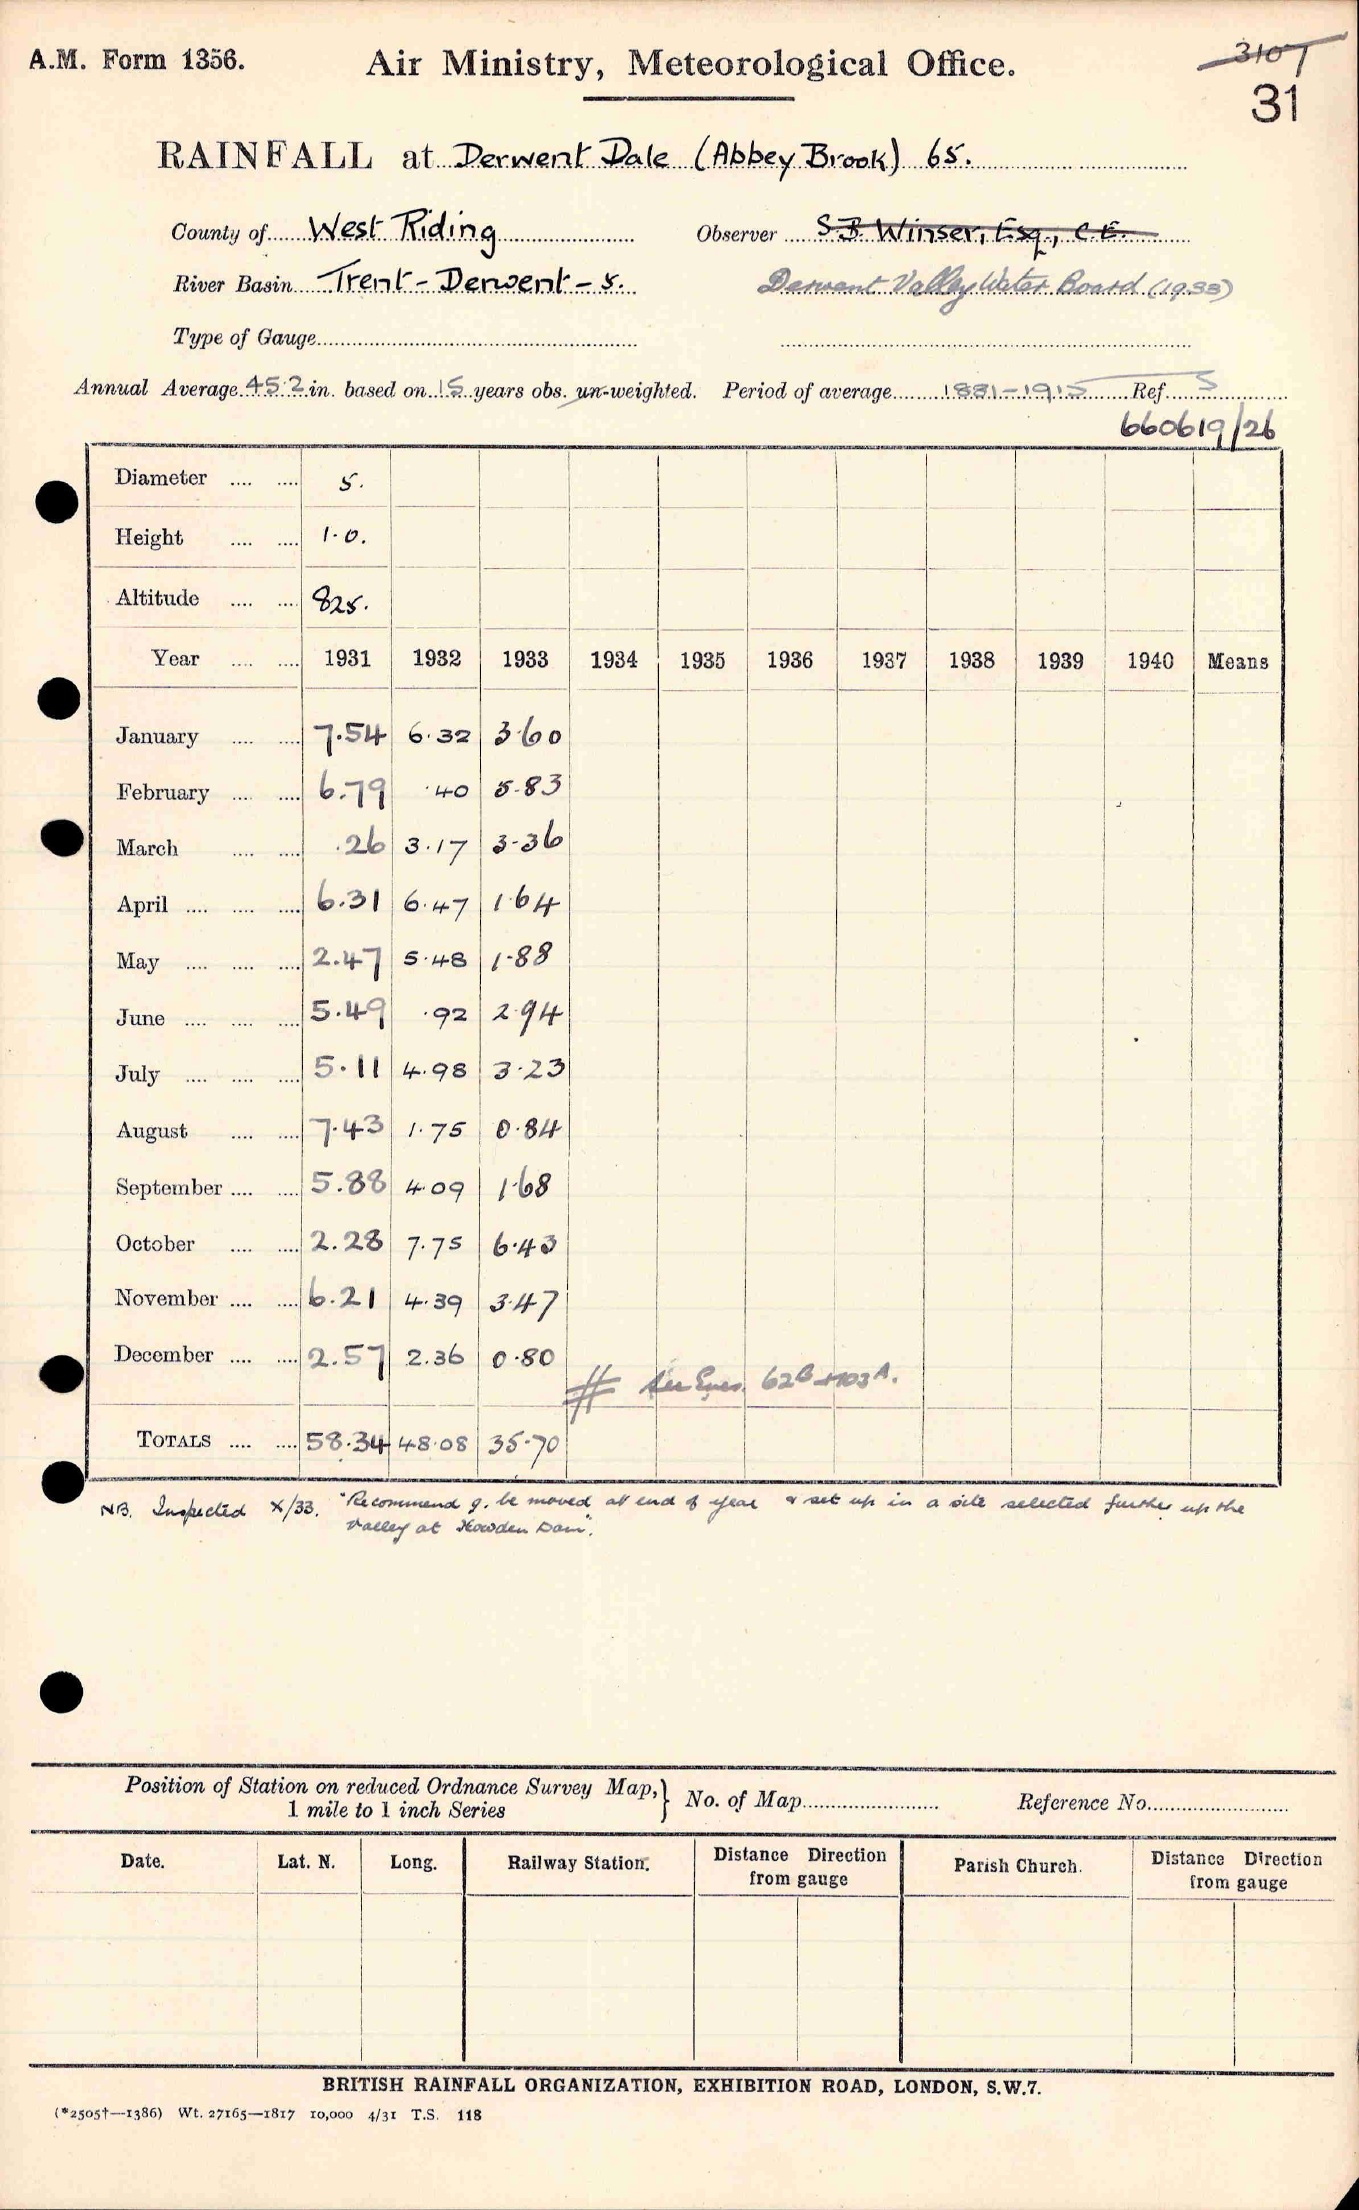 A.M. Form 1356.
Air Ministry, Meteorological Office.
3107
31
RAINFALL at Derwent Dale (Abbey Brook) 65.
County of West Riding Observer S.B. Winser, Esq., C.E.
River Basin Trent - Derwent - 5. Derwent Valley Water Board (1933)
Type of Gauge
Annual Average 45.2 in. based on 15 years obs. un-weighted. Period of average 1881-1915 Ref. 5
660619/26
Diameter .... .... 5.
Height .... .... 1.0.
Altitude .... .... 825.
Year .... .... 1931 1932 1933 1934 1935 1936 1937 1938 1939 1940 Means
January .... .... 7.54 6.32 3.60
February .... .... 6.79 .40 5.83
March .... .... .26 3.17 3.36
April .... .... .... 6.31 6.47 1.64
May .... .... .... 2.47 5.48 1.88
June .... .... .... 5.49 .92 2.94
July .... .... .... 5.11 4.98 3.23
August .... .... 7.43 1.75 0.84
September .... .... 5.88 4.09 1.68
October .... .... 2.28 7.75 6.43
November .... .... 6.21 4.39 3.47
December .... .... 2.57 2.36 0.80
# 62B 103A.
TOTALS .... .... 58.34 48.08 35.70
NB. Inspected X/33. "Recommend g. be moved at end of year & set up in a site selected further up the
Valley at Howden Dam".
Position of Station on reduced Ordnance Survey Map,} No. of Map Reference No.
1 mile to 1 inch Series
Date. Lat. N. Long. Railway Station. Distance Direction from gauge Parish Church. Distance Direction from gauge
BRITISH RAINFALL ORGANIZATION, EXHIBITION ROAD, LONDON, S.W.7.
(*2505†—1386) Wt. 27165—1817 10,000 4/31 T.S. 118